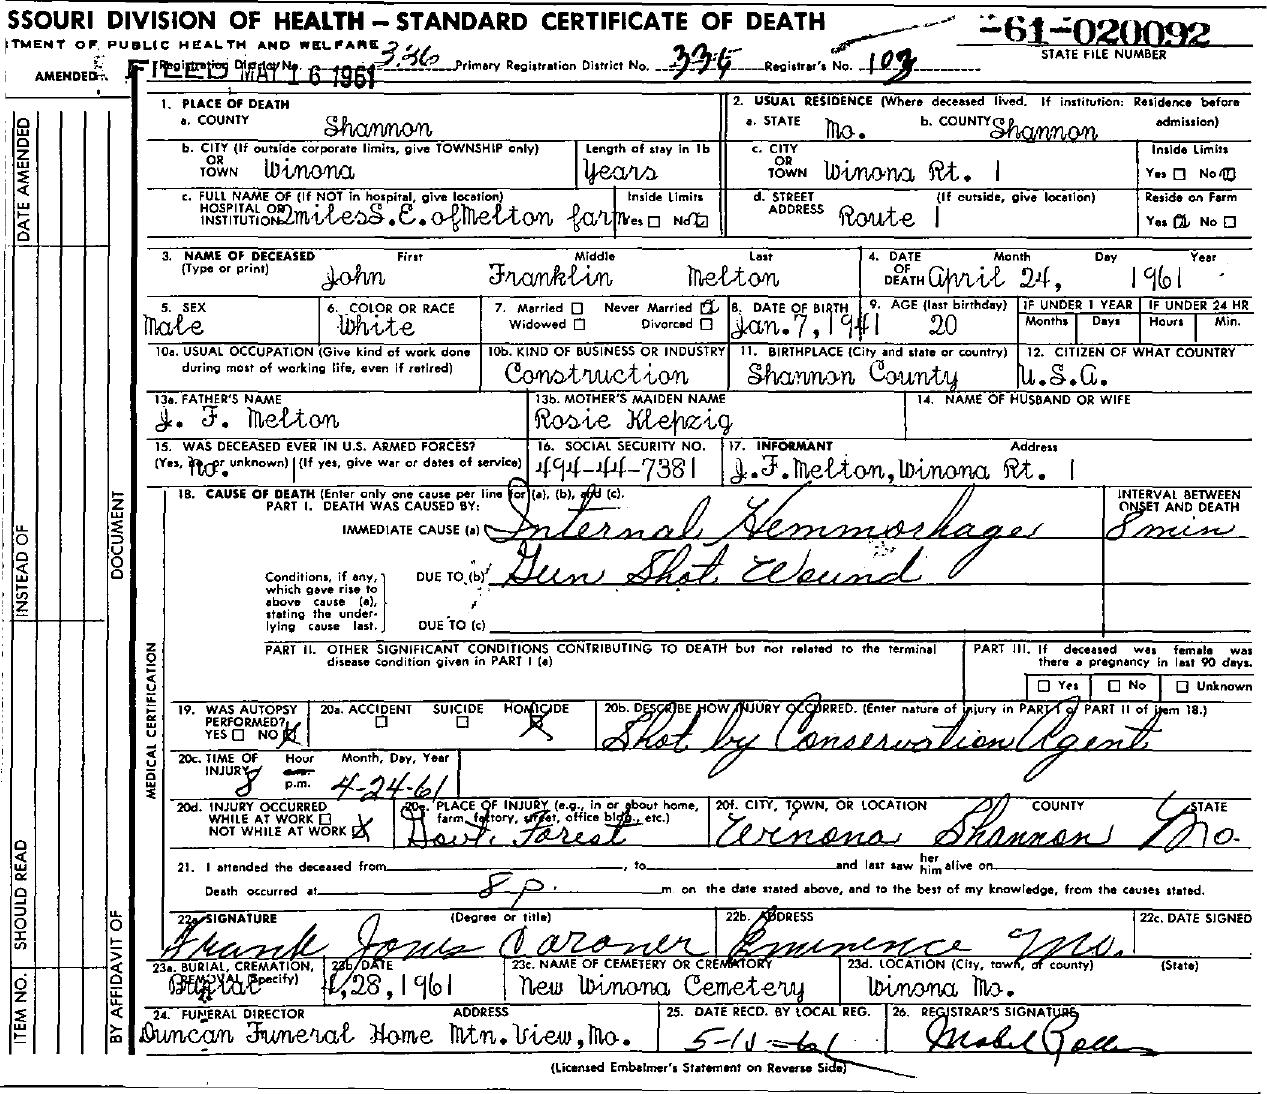 SSOURI DIVISION OF HEALTH – STANDARD CERTIFICATE OF DEATH
-61-020092
ITMENT OF PUBLIC HEALTH AND WELFARE
STATE FILE NUMBER
AMENDED
FILED MAY 16 1961
Registration District No. 336 Primary Registration District No. 336 Registrar's No. 103
DATE AMENDED
INSTEAD OF
SHOULD READ
ITEM NO.
DOCUMENT
BY AFFIDAVIT OF
1. PLACE OF DEATH
a. COUNTY Shannon
2. USUAL RESIDENCE (Where deceased lived. If institution: Residence before admission)
a. STATE Mo. b. COUNTY Shannon
b. CITY (If outside corporate limits, give TOWNSHIP only)
OR
TOWN Winona
Length of stay in 1b
Years
c. CITY
OR
TOWN Winona Rt. 1
Inside Limits
Yes No
c. FULL NAME OF (If NOT in hospital, give location)
HOSPITAL OR
INSTITUTION 2miles S.E. of Melton farm
Inside Limits
Yes No
d. STREET (If outside, give location)
ADDRESS Route 1
Reside on Farm
Yes No
3. NAME OF DECEASED First Middle Last
(Type or print) John Franklin Melton
4. DATE Month Day Year
OF
DEATH April 24, 1961
5. SEX
Male
6. COLOR OR RACE
White
7. Married Never Married
Widowed Divorced
8. DATE OF BIRTH
Jan. 7, 1941
9. AGE (last birthday)
20
IF UNDER 1 YEAR
Months Days
IF UNDER 24 HR
Hours Min.
10a. USUAL OCCUPATION (Give kind of work done
during most of working life, even if retired)
10b. KIND OF BUSINESS OR INDUSTRY
Construction
11. BIRTHPLACE (City and state or country)
Shannon County
12. CITIZEN OF WHAT COUNTRY
U.S.A.
13a. FATHER'S NAME
J. F. Melton
13b. MOTHER'S MAIDEN NAME
Rosie Klepzig
14. NAME OF HUSBAND OR WIFE
15. WAS DECEASED EVER IN U.S. ARMED FORCES?
(Yes, no, or unknown) (If yes, give war or dates of service)
no.
16. SOCIAL SECURITY NO.
494-44-7381
17. INFORMANT Address
J.F.Melton, Winona Rt. 1
MEDICAL CERTIFICATION
18. CAUSE OF DEATH (Enter only one cause per line for (a), (b), and (c).
PART I. DEATH WAS CAUSED BY:
IMMEDIATE CAUSE (a) Internal Hemmorhage
INTERVAL BETWEEN
ONSET AND DEATH
8 min
Conditions, if any,
which gave rise to
above cause (a),
stating the under-
lying cause last.
DUE TO (b) Gun Shot Wound
DUE TO (c)
PART II. OTHER SIGNIFICANT CONDITIONS CONTRIBUTING TO DEATH but not related to the terminal
disease condition given in PART I (a)
PART III. If deceased was female was
there a pregnancy in last 90 days.
Yes No Unknown
19. WAS AUTOPSY
PERFORMED?
YES NO
20a. ACCIDENT SUICIDE HOMICIDE
20b. DESCRIBE HOW INJURY OCCURRED. (Enter nature of injury in PART I or PART II of item 18.)
Shot by Conservation Agent
20c. TIME OF Hour Month, Day, Year
INJURY 8 p.m. 4-24-61
20d. INJURY OCCURRED
WHILE AT WORK
NOT WHILE AT WORK
20e. PLACE OF INJURY (e.g., in or about home,
farm, factory, street, office bldg., etc.)
Govt. Forest
20f. CITY, TOWN, OR LOCATION COUNTY STATE
Winona Shannon Mo.
21. I attended the deceased from , to and last saw her him alive on
Death occurred at 8 p. m on the date stated above, and to the best of my knowledge, from the causes stated.
22a. SIGNATURE (Degree or title)
Frank Jones Caroner
22b. ADDRESS
Eminence Mo.
22c. DATE SIGNED
23a. BURIAL, CREMATION,
REMOVAL (Specify)
Burial
23b. DATE
4,28,1961
23c. NAME OF CEMETERY OR CREMATORY
New Winona Cemetery
23d. LOCATION (City, town, or county) (State)
Winona Mo.
24. FUNERAL DIRECTOR ADDRESS
Duncan Funeral Home Mtn. View, Mo.
25. DATE RECD. BY LOCAL REG.
5-10-61
26. REGISTRAR'S SIGNATURE
Mabel
(Licensed Embalmer's Statement on Reverse Side)